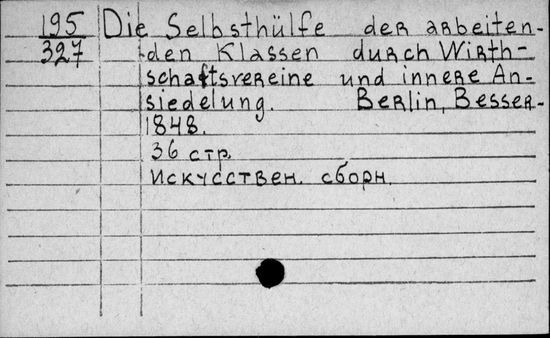 195 Die Selbsthülfe der arbeiten-
327 den Klassen durch Wirth-
schaftsvereine und innere An-
siedelung. Berlin, Besser.
1848.
36 стр.
Искусствен. сборн.